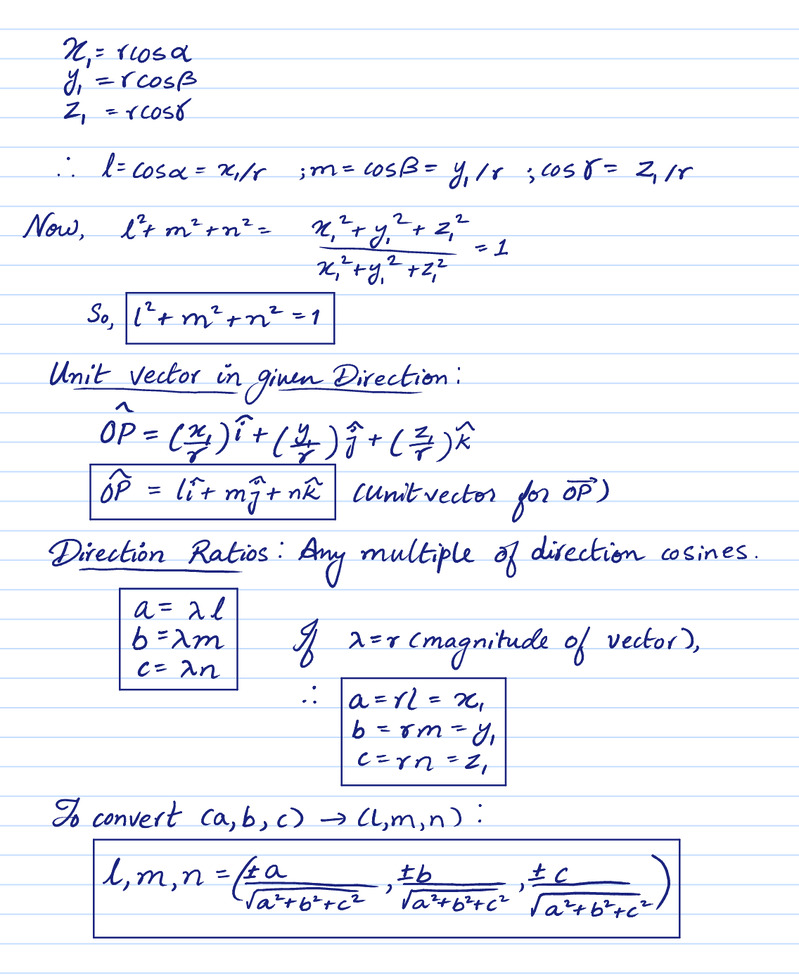 x₁ = rcosα
y₁ = rcosβ
z₁ = rcosγ
∴ l = cosα = x₁/r ; m = cosβ = y₁/r ; cosγ = z₁/r
Now, l² + m² + n² = (x₁² + y₁² + z₁²)/(x₁² + y₁² + z₁²) = 1
So, l² + m² + n² = 1
Unit vector in given Direction :
OP̂ = (x₁/r)î + (y₁/r)ĵ + (z₁/r)k̂
OP̂ = lî + mĵ + nk̂ (Unit vector for OP⃗)
Direction Ratios : Any multiple of direction cosines.
a = λl
b = λm
c = λn
If λ = r (magnitude of vector),
∴ a = rl = x₁
b = rm = y₁
c = rn = z₁
To convert (a, b, c) → (l, m, n) :
l, m, n = (±a/√(a²+b²+c²), ±b/√(a²+b²+c²), ±c/√(a²+b²+c²))